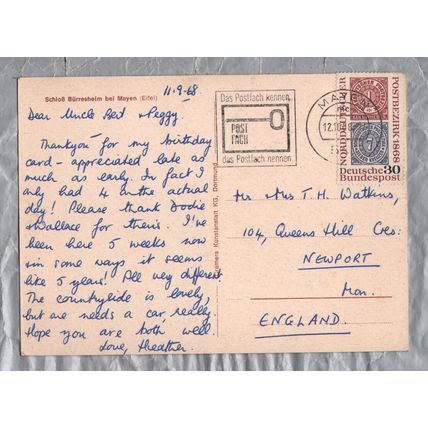 Schloß Bürresheim bei Mayen (Eifel)
11.9.68
Dear Uncle Bert & Peggy.
Thankyou for my birthday
card - appreciated late as
much as early. In fact I
only had 4 on the actual
day! Please thank Dodie
& Wallace for theirs. I've
been here 5 weeks now
in some ways it seems
like 5 years! All very different
The countryside is lovely,
but one needs a car, really.
Hope you are both well
Love, Heather.
Kunstanstalt KG, Dortmund
Das Postfach kennen,
POST
FACH
das Postfach nennen
MAYEN
12.10.68
NORDDEUTSCHER
POSTBEZIRK 1868
1
7
Deutsche 30
Bundespost
Mr & Mrs T. H. Watkins,
104, Queens Hill Cres:
NEWPORT
Mon.
ENGLAND.